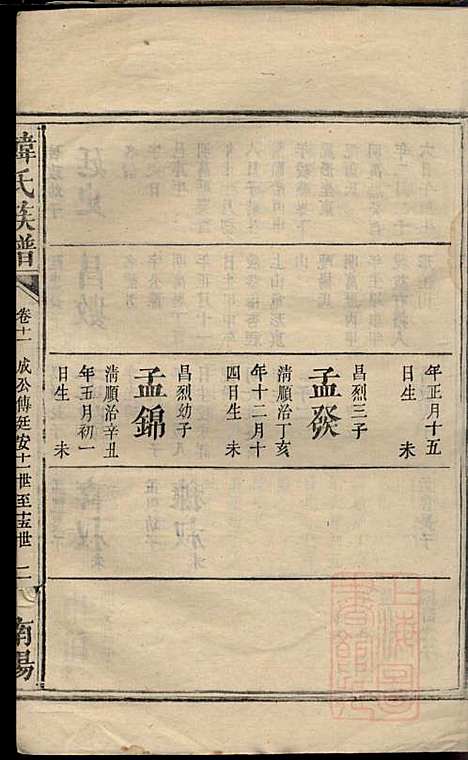 年正月十五
日生　未
孟發
昌烈三子
清順治丁亥
年十二月十
四日生　未
孟錦
昌烈幼子
清順治辛丑
年五月初一
日生　未
韓氏族譜
卷十一　成公傳廷安十一世至十五世　二
南陽